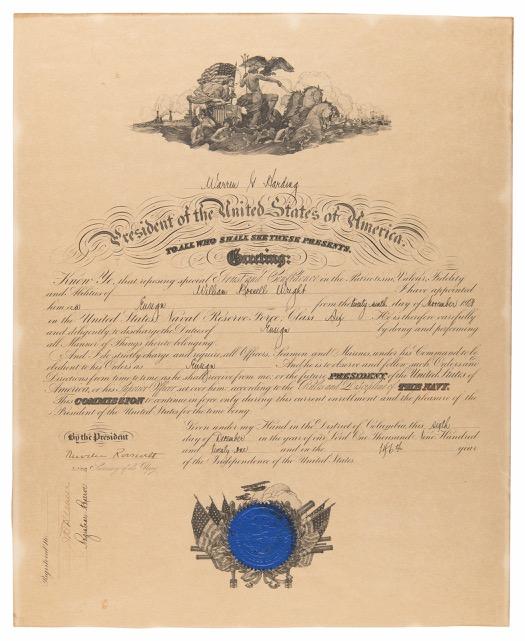 Warren G Harding
President of the United States of America.
TO ALL WHO SHALL SEE THESE PRESENTS,
Greeting:
Know Ye, that reposing special Trust and Confidence in the Patriotism, Valour, Fidelity
and Abilities of William Wright I have appointed
him Ensign from the twenty sixth day of November
in the United States Naval Reserve Force Class Six He is therefore carefully
and diligently to discharge the Duties of Ensign by doing and performing
all Manner of Things thereto belonging.
And I do strictly charge and require all Officers, Seamen and Marines under his Command to be
obedient to his Orders as Ensign And he is to observe and follow such Orders and
Directions from time to time as he shall receive from me, or the future PRESIDENT of the United States of
America, or his Superior Officer set over him, according to the Rules and Discipline of THE NAVY.
This COMMISSION to continue in force only during this current enrollment and the pleasure of the
President of the United States for the time being.
Given under my Hand in the District of Columbia this sixth
day of December in the year of our Lord One Thousand Nine Hundred
and twenty one and in the 146th year
of the Independence of the United States.
By the President
Roosevelt
Secretary of the Navy.
Registered No.